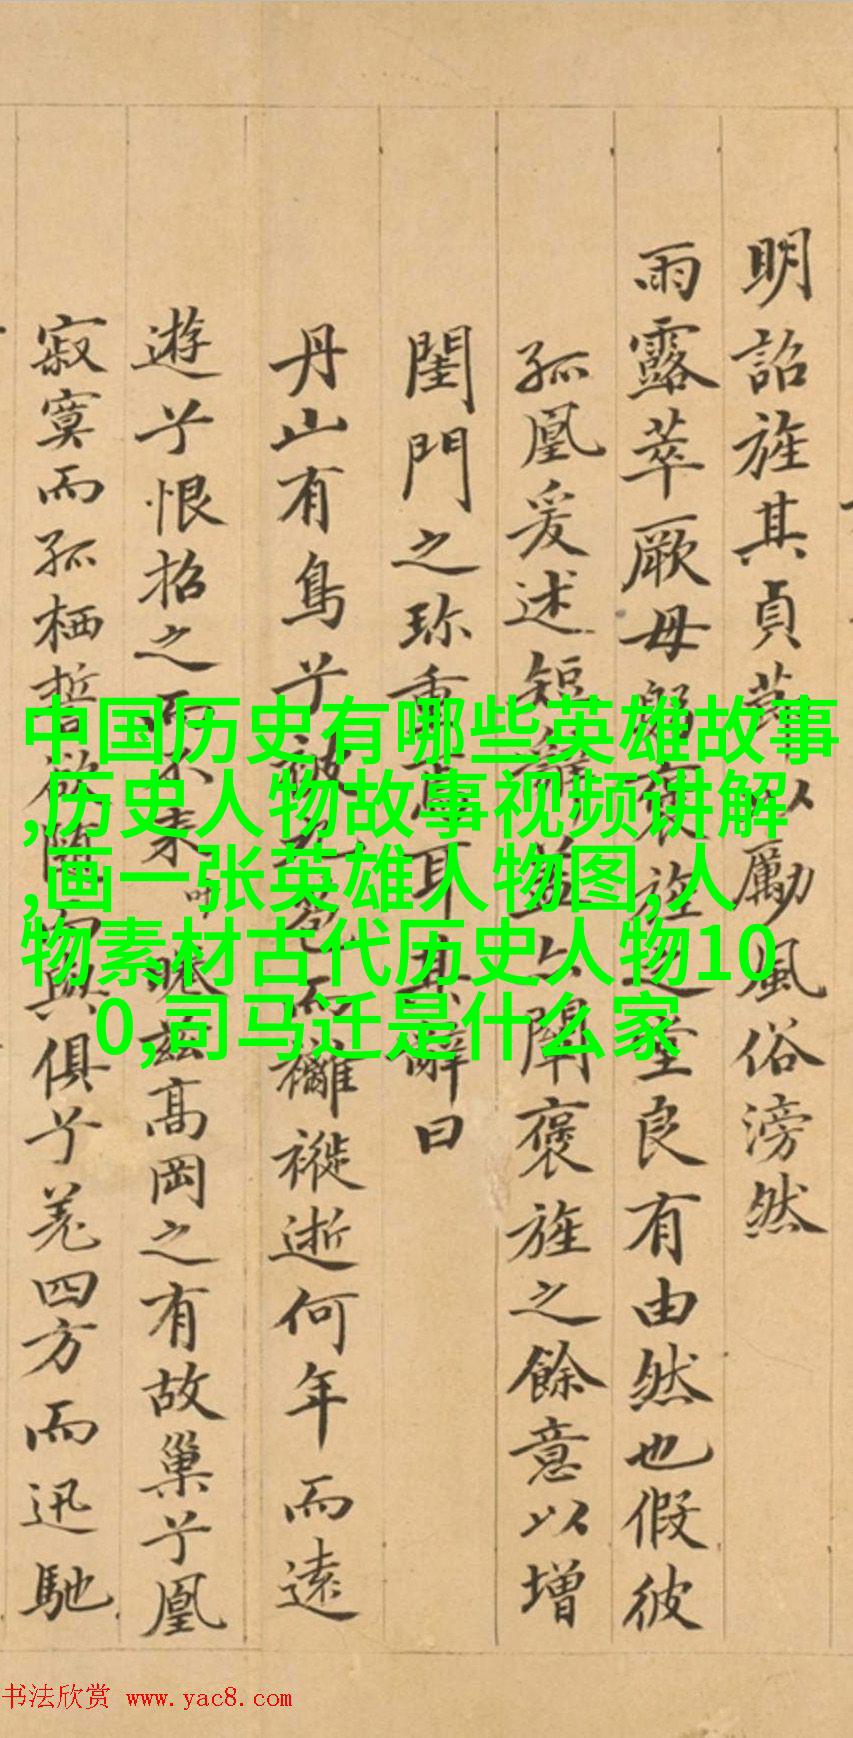 明詔旌其貞以勵風俗滂然
雨露萃厥母躬褒旌之堂良有由然也假彼
孤凰爰述短辭蓋以闡褒旌之餘意以增
閨門之珎重焉耳其辭曰
丹山有鳥兮被五色而襹褷逝何年而遠
遊兮恨招之而不来吁睠茲高岡之有故巢兮凰
寂寞而孤栖誓欲隨與俱兮羌四方而迅馳
中国历史有哪些英雄故事
,历史人物故事视频讲解
,画一张英雄人物图,人
物素材古代历史人物10
0,司马迁是什么家
书法欣赏 www.yac8.com